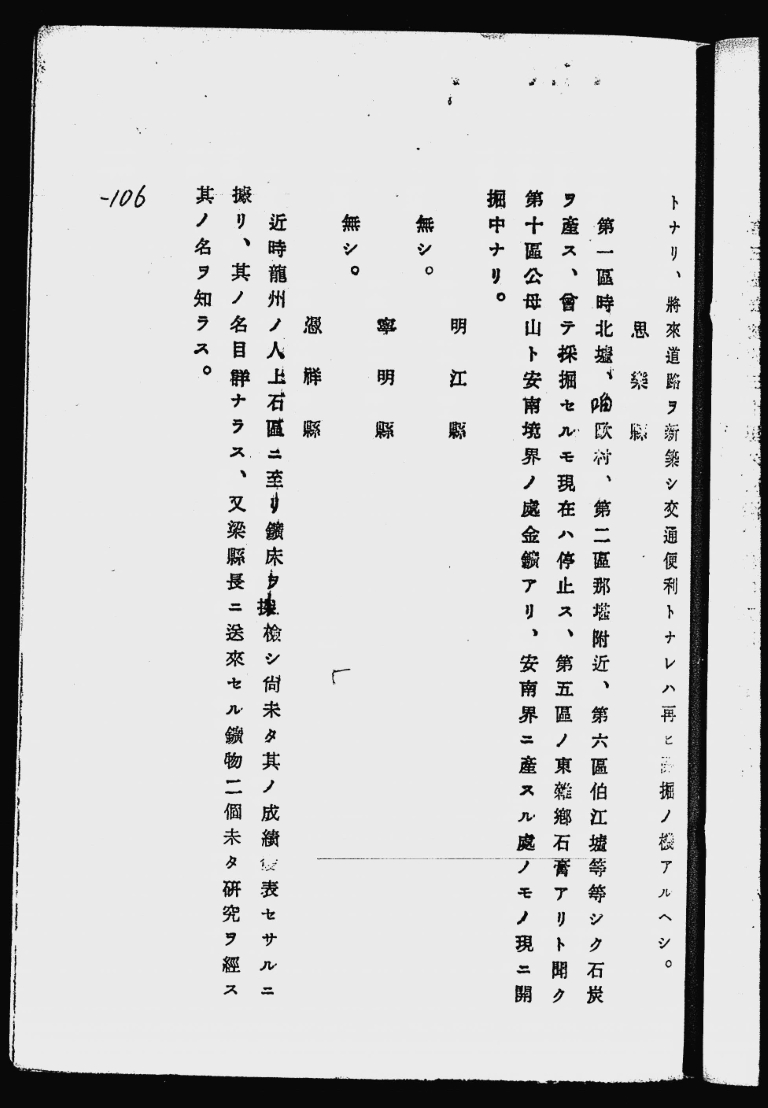 トナリ、將來道路ヲ新築シ交通便利トナレハ再ヒ掘ノ機アルヘシ。
思樂縣
第一區時北墟、咘歐村、第二區那塔附近、第六區伯江墟等等シク石炭
ヲ產ス、曾テ採掘セルモ現在ハ停止ス、第五區ノ東雜鄉石膏アリト聞ク
第十區公母山ト安南境界ノ處金鑛アリ、安南界ニ產スル處ノモノ現ニ開
掘中ナリ。
明江縣
無シ。
寧明縣
無シ。
憑祥縣
近時龍州ノ人上石區ニ至リ鑛床ヲ探檢シ尙未タ其ノ成績發表セサルニ
據リ、其ノ名目群ナラス、又梁縣長ニ送來セル鑛物二個未タ硏究ヲ經ス
其ノ名ヲ知ラス。
-106